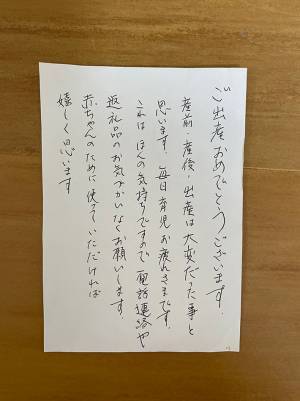 ご出産おめでとうございます。
産前・産後・出産は大変だった事と
思います。毎日育児お疲れさまです。
これはほんの気持ちですので、電話連絡や
返礼品のお気づかいなくお願いします。
赤ちゃんのために使っていただければ
嬉しく思います